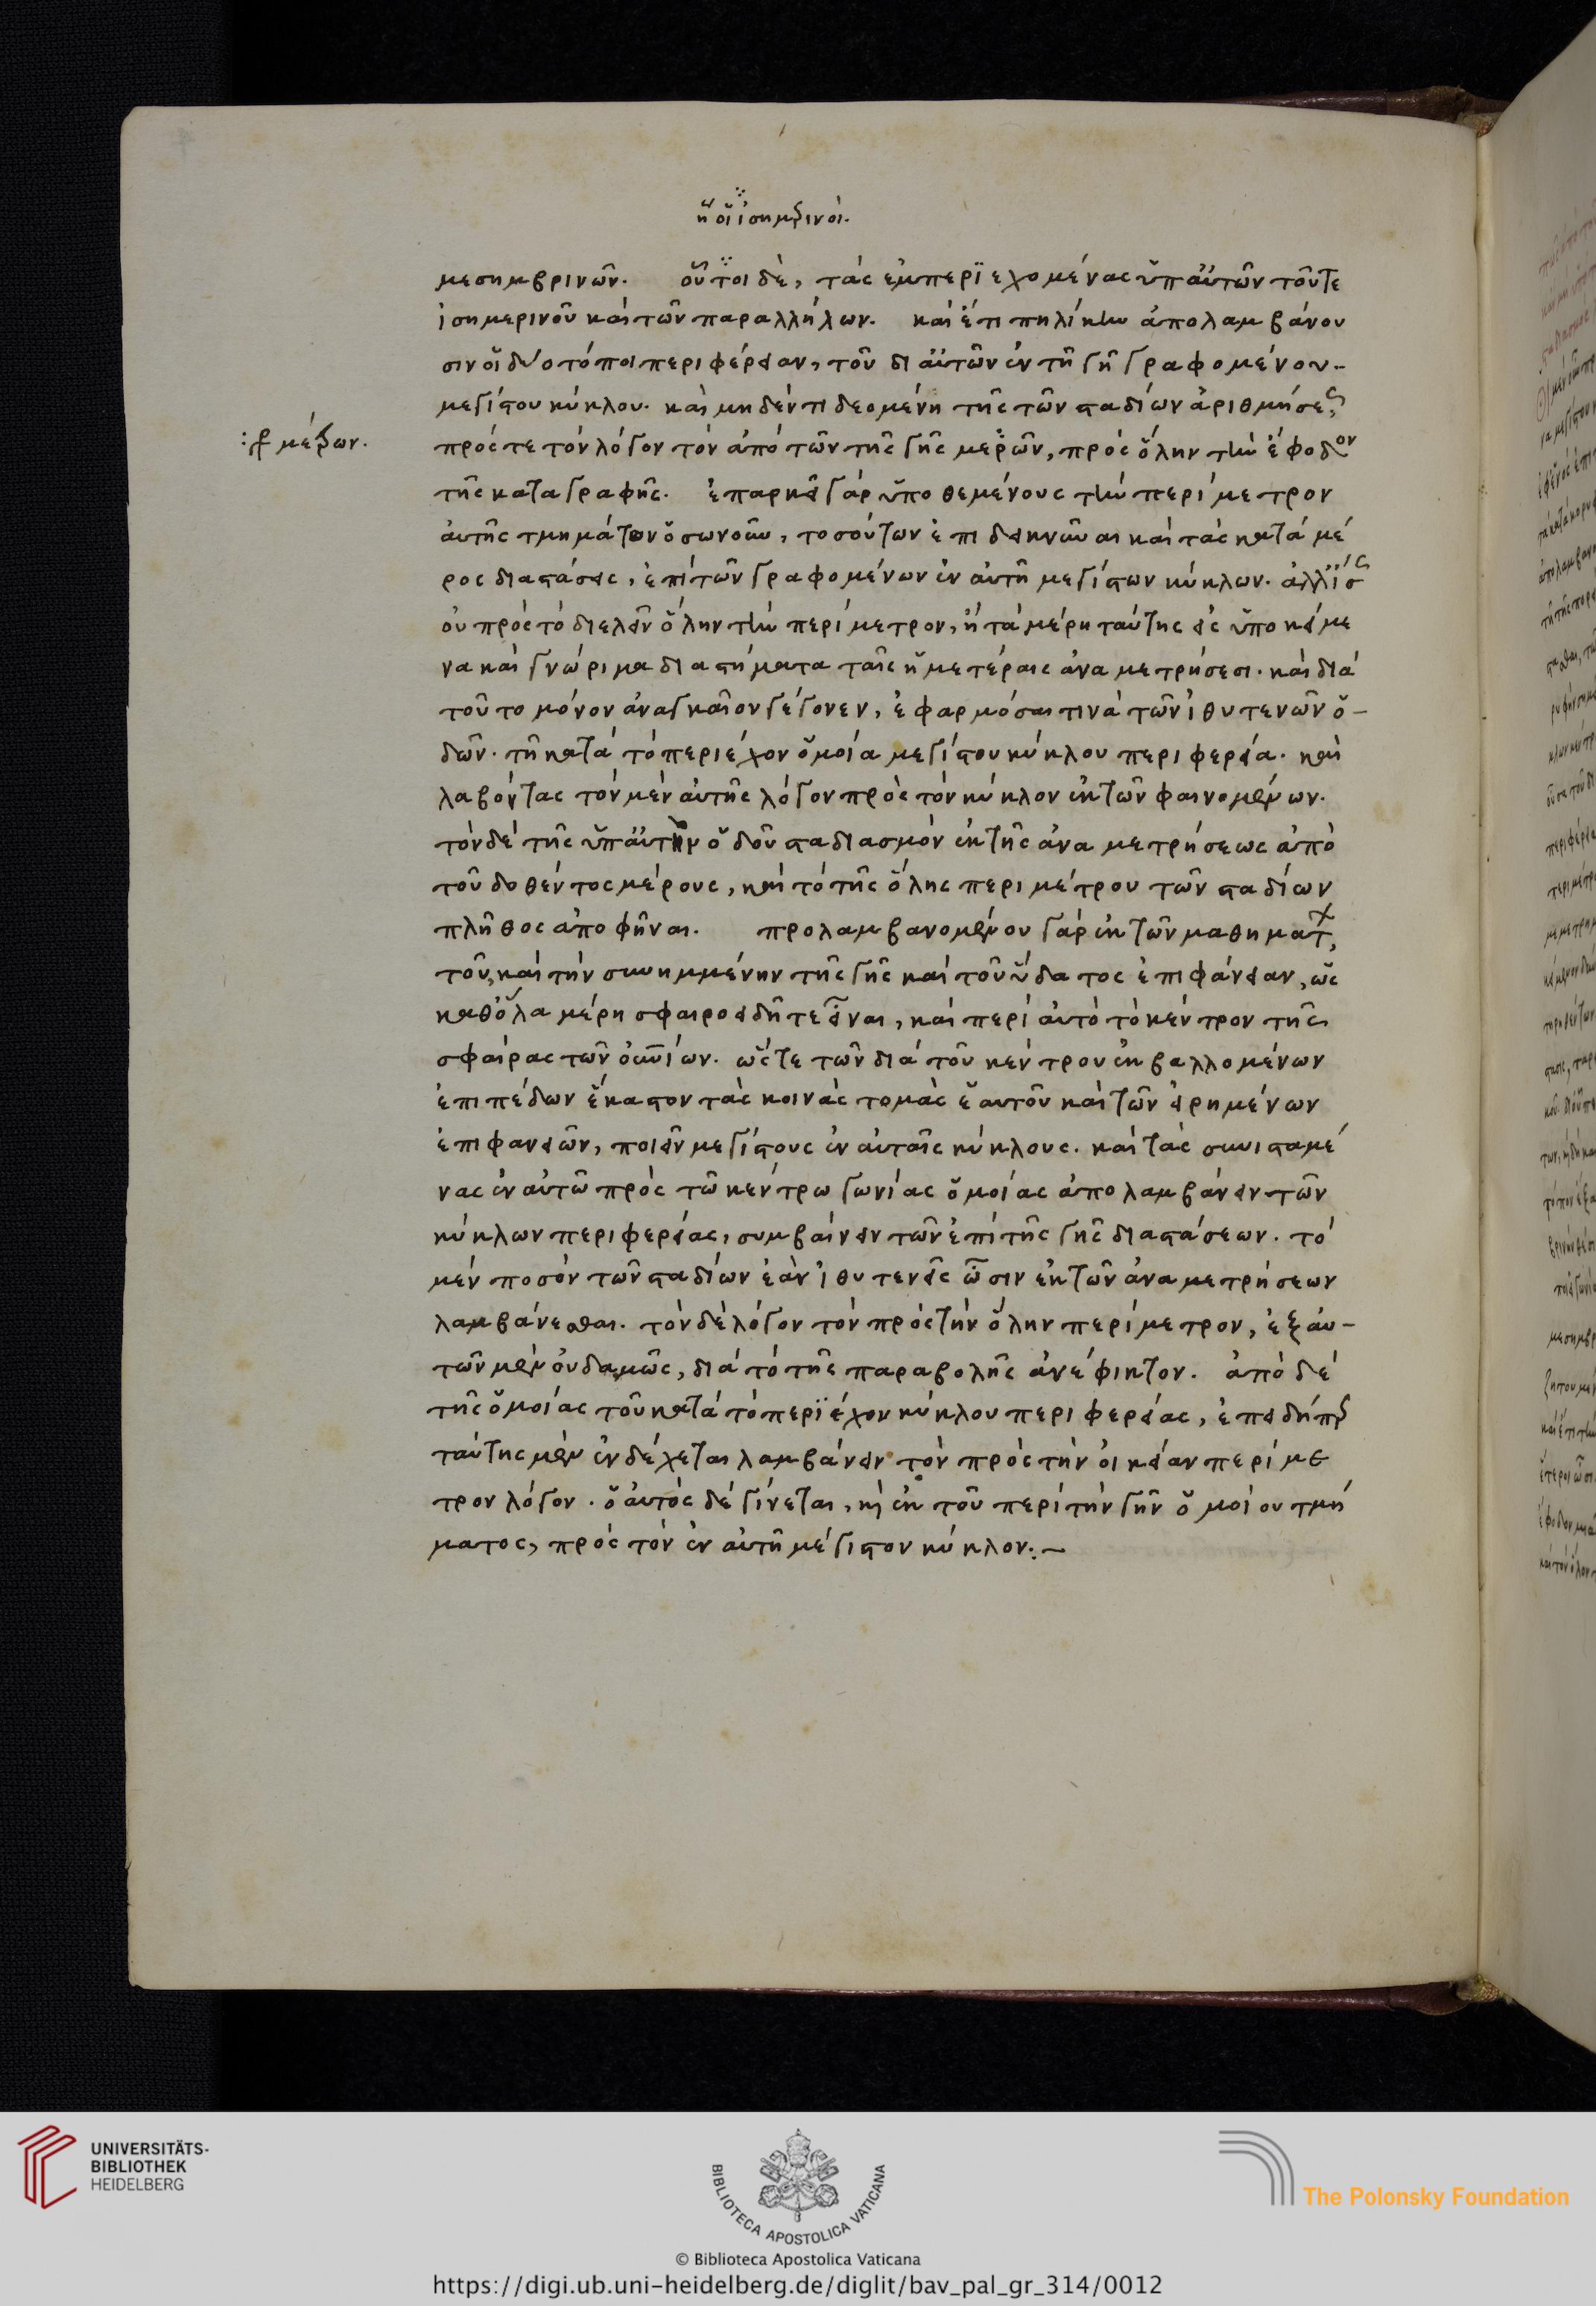 ἢ οἱ ἰσημερινοί.
μεσημβρινῶν. οὗτοι δὲ, τὰς ἐμπεριεχομένας ὑπ αὐτῶν τοῦτε
ἰσημερινοῦ καὶ τῶν παραλλήλων. καὶ ἔτι πηλίκην ἀπολαμβάνου
σιν οἱ δύο τόποι περιφέρειαν, τοῦ δι αὐτῶν ἐν τῇ γῇ γραφομένου-
μεγίστου κύκλου. καὶ μηδέν τι δεομένη τῆς τῶν σταδίων ἀριθμήσεως,
:ϛ μέρων.
πρός τε τὸν λόγον τὸν ἀπὸ τῶν τῆς γῆς μερῶν, πρὸς ὅλην τὴν ἔφοδον
τῆς καταγραφῆς. ἐπαρκεῖ γὰρ ὑποθεμένους τὴν περίμετρον
αὐτῆς τμημάτων ὅσων οὖν, τοσούτων ἐπιδεικνῦναι καὶ τὰς κατὰ μέ
ρος διαστάσεις, ἐπὶ τῶν γραφομένων ἐν αὐτῇ μεγίστων κύκλων. ἀλλ ἴσως
οὐ πρὸς τὸ διελεῖν ὅλην τὴν περίμετρον, ἢ τὰ μέρη ταύτης εἰς ὑποκείμε
να καὶ γνώριμα διαστήματα ταῖς ἡμετέραις ἀναμετρήσεσι. καὶ διὰ
τοῦτο μόνον ἀναγκαῖον γέγονεν, ἐφαρμόσαι τινὰ τῶν ἰθυτενῶν ὁ-
δῶν. τῇ κατὰ τὸ περιέχον ὁμοία μεγίστου κύκλου περιφερεία. καὶ
λαβόντας τὸν μὲν αὐτῆς λόγον πρὸς τὸν κύκλον ἐκ τῶν φαινομένων.
τὸν δὲ τῆς ὑπ αὐτὴν ὁδοῦ σταδιασμὸν ἐκ τῆς ἀναμετρήσεως ἀπὸ
τοῦ δοθέντος μέρους, καὶ τὸ τῆς ὅλης περιμέτρου τῶν σταδίων
πλῆθος ἀποφῆναι. προλαμβανομένου γὰρ ἐκ τῶν μαθημάτ,
τοῦ, καὶ τὴν συνημμένην τῆς γῆς καὶ τοῦ ὕδατος ἐπιφάνειαν, ὡς
καθ ὅλα μέρη σφαιροειδῆ τε εἶναι, καὶ περὶ αὐτὸ τὸ κέντρον τῆς
σφαίρας τῶν οὐνίων. ὥςτε τῶν διὰ τοῦ κέντρου ἐκβαλλομένων
ἐπιπέδων ἕκαστον τὰς κοινὰς τομὰς ἑαυτοῦ καὶ τῶν εἰρημένων
ἐπιφανειῶν, ποιεῖν μεγίστους ἐν αὐταῖς κύκλους. καὶ τὰς συνισταμέ
νας ἐν αὐτῶ πρὸς τῶ κέντρω γωνίας ὁμοίας ἀπολαμβάνειν τῶν
κύκλων περιφερείας, συμβαίνειν τῶν ἐπὶ τῆς γῆς διαστάσεων. τὸ
μὲν ποσὸν τῶν σταδίων ἐὰν ἰθυτενεῖς ὦσιν ἐκ τῶν ἀναμετρήσεων
λαμβάνεσθαι. τὸν δὲ λόγον τὸν πρὸς τὴν ὅλην περίμετρον, ἐξ αὐ-
τῶν μὲν οὐδαμῶς, διὰ τὸ τῆς παραβολῆς ἀνέφικτον. ἀπὸ δὲ
τῆς ὁμοίας τοῦ κατὰ τὸ περιέχον κύκλου περιφερείας, ἐπειδήπερ
ταύτης μὲν ἐνδέχεται λαμβάνειν τὸν πρὸς τὴν οἰκείαν περίμε
τρον λόγον. ὁ αὐτὸς δὲ γίνεται, κὶ ἐκ τοῦ περὶ τὴν γῆν ὁμοίου τμή
ματος, πρὸς τὸν ἐν αὐτῇ μέγιστον κύκλον:~
UNIVERSITÄTS-
BIBLIOTHEK
HEIDELBERG
BIBLIOTECA APOSTOLICA VATICANA
The Polonsky Foundation
© Biblioteca Apostolica Vaticana
https://digi.ub.uni-heidelberg.de/diglit/bav_pal_gr_314/0012